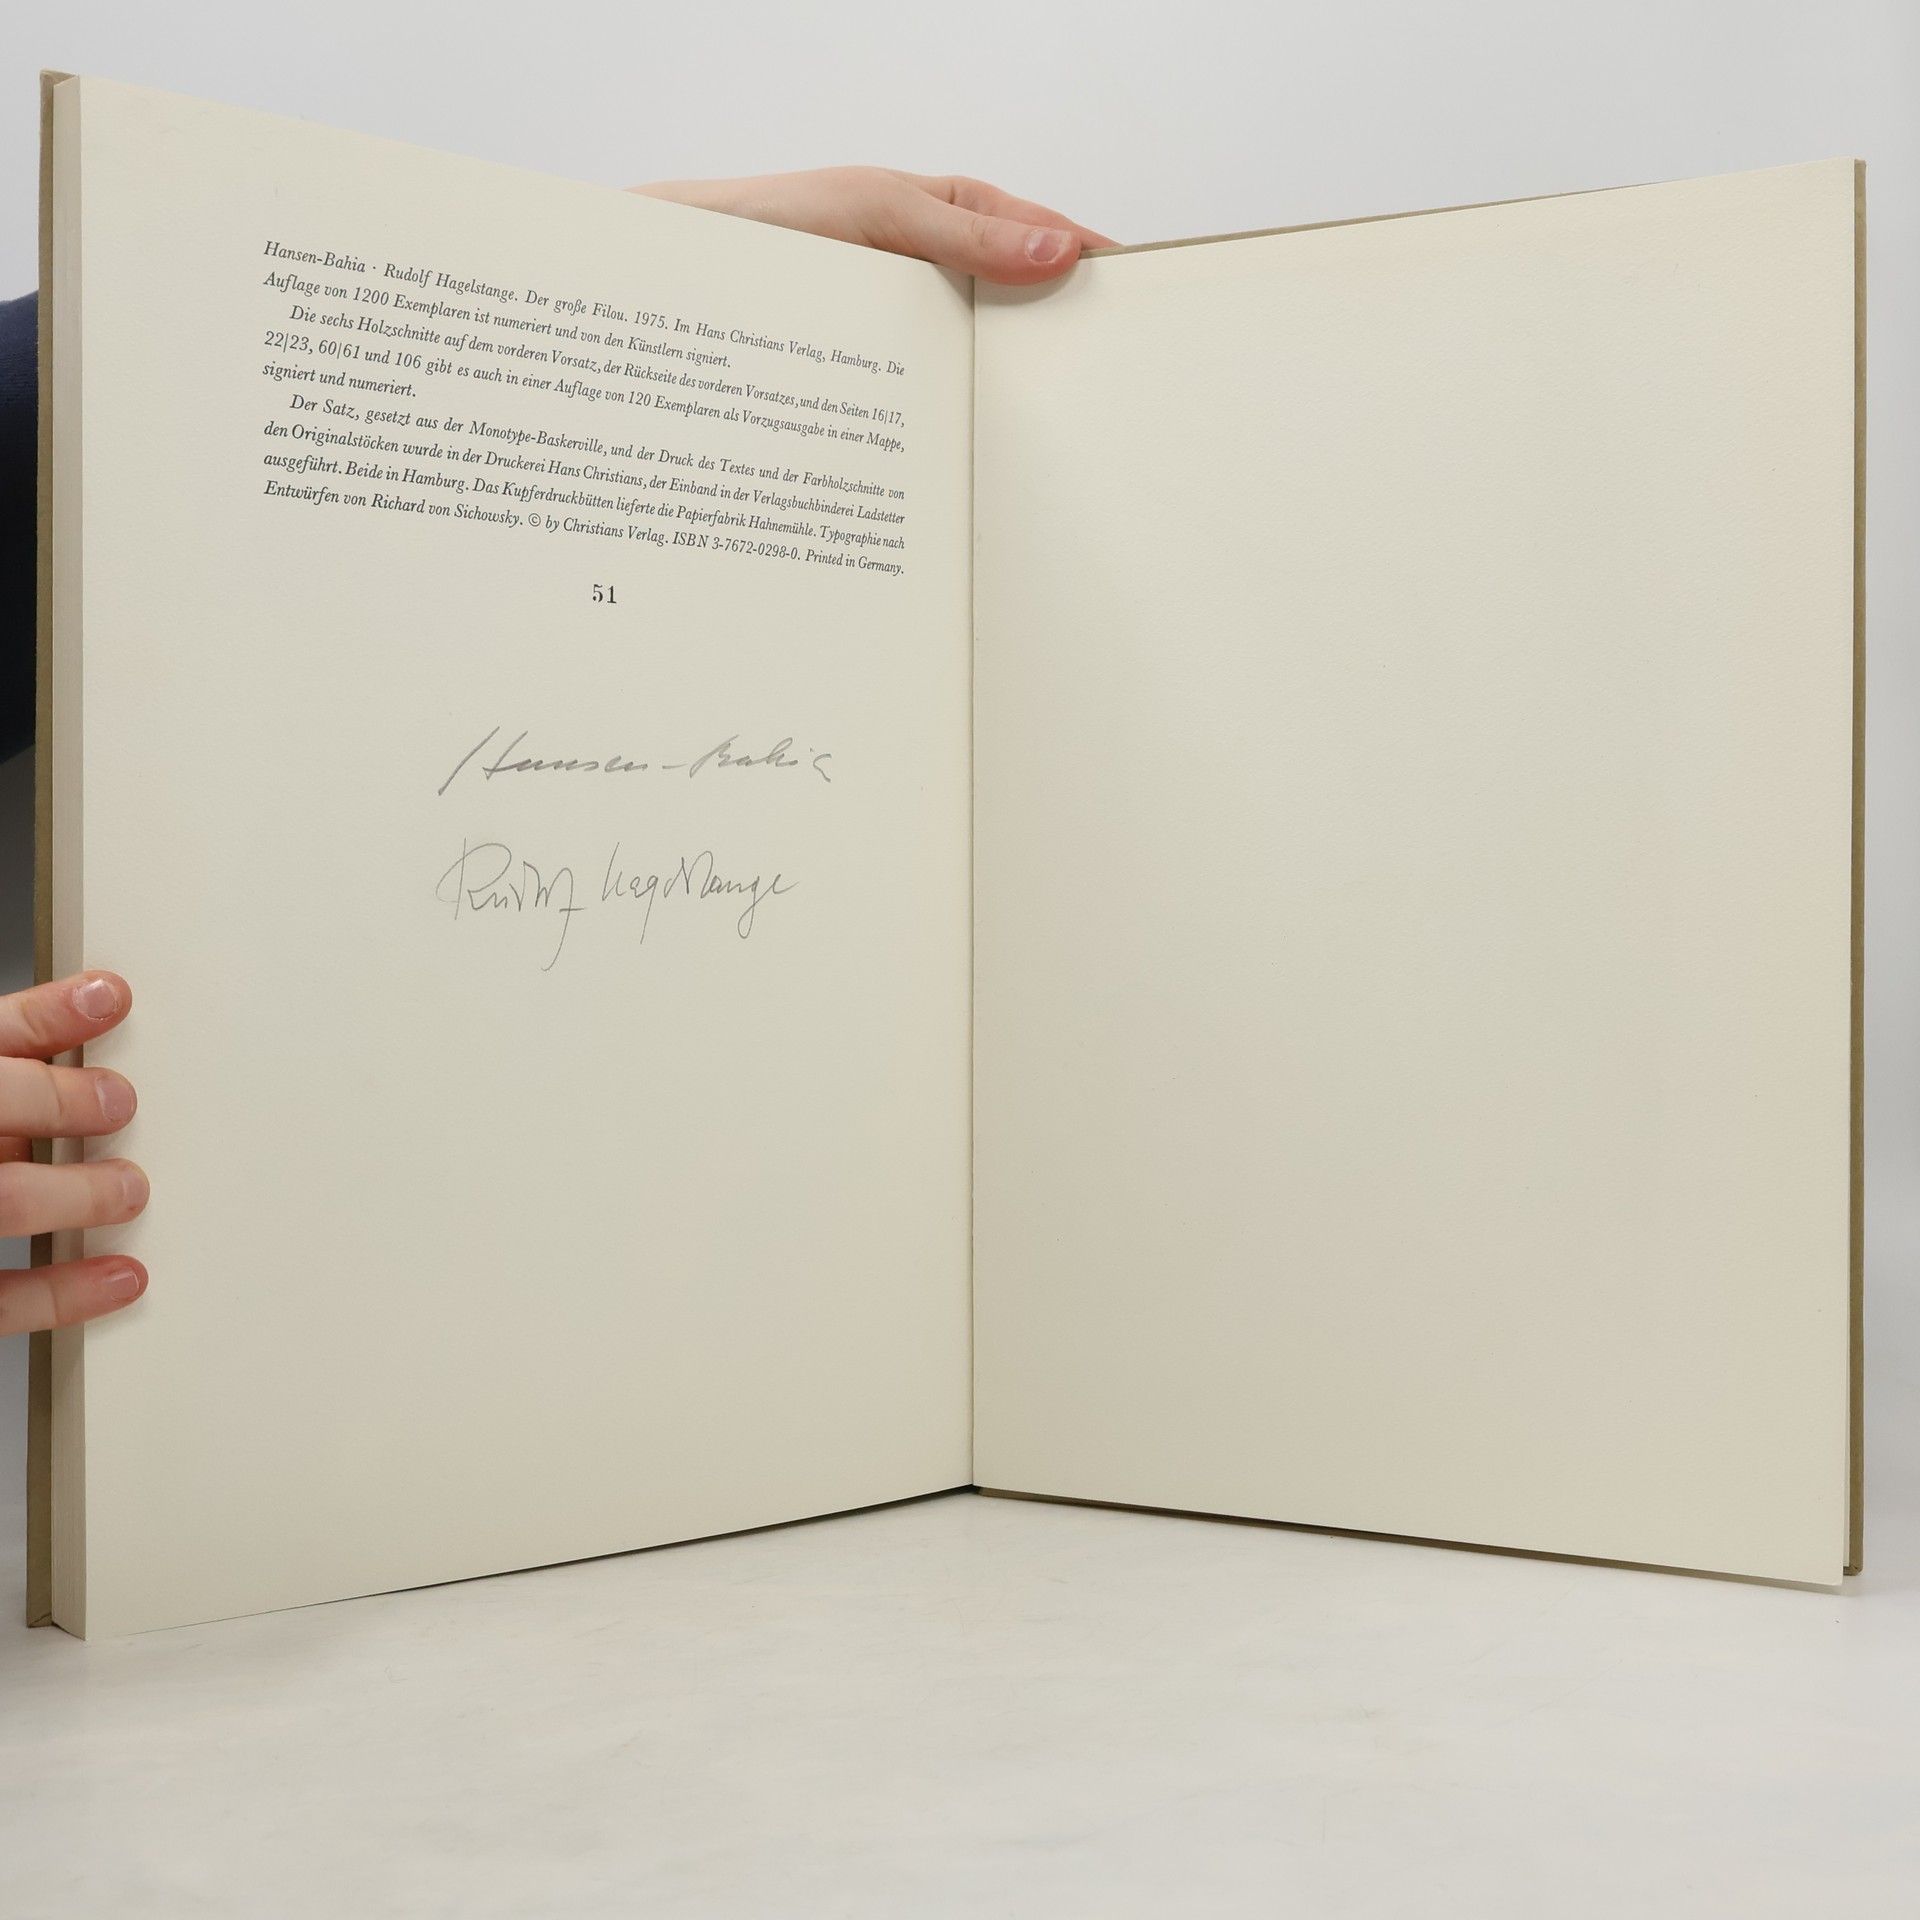 Hansen-Bahia · Rudolf Hagelstange. Der große Filou. 1975. Im Hans Christians Verlag, Hamburg. Die
Auflage von 1200 Exemplaren ist numeriert und von den Künstlern signiert.
Die sechs Holzschnitte auf dem vorderen Vorsatz, der Rückseite des vorderen Vorsatzes, und den Seiten 16|17,
22|23, 60|61 und 106 gibt es auch in einer Auflage von 120 Exemplaren als Vorzugsausgabe in einer Mappe,
signiert und numeriert.
Der Satz, gesetzt aus der Monotype-Baskerville, und der Druck des Textes und der Farbholzschnitte von
den Originalstöcken wurde in der Druckerei Hans Christians, der Einband in der Verlagsbuchbinderei Ladstetter
ausgeführt. Beide in Hamburg. Das Kupferdruckbütten lieferte die Papierfabrik Hahnemühle. Typographie nach
Entwürfen von Richard von Sichowsky. © by Christians Verlag. ISBN 3-7672-0298-0. Printed in Germany.
51
Hansen-Bahia
Rudolf Hagelstange